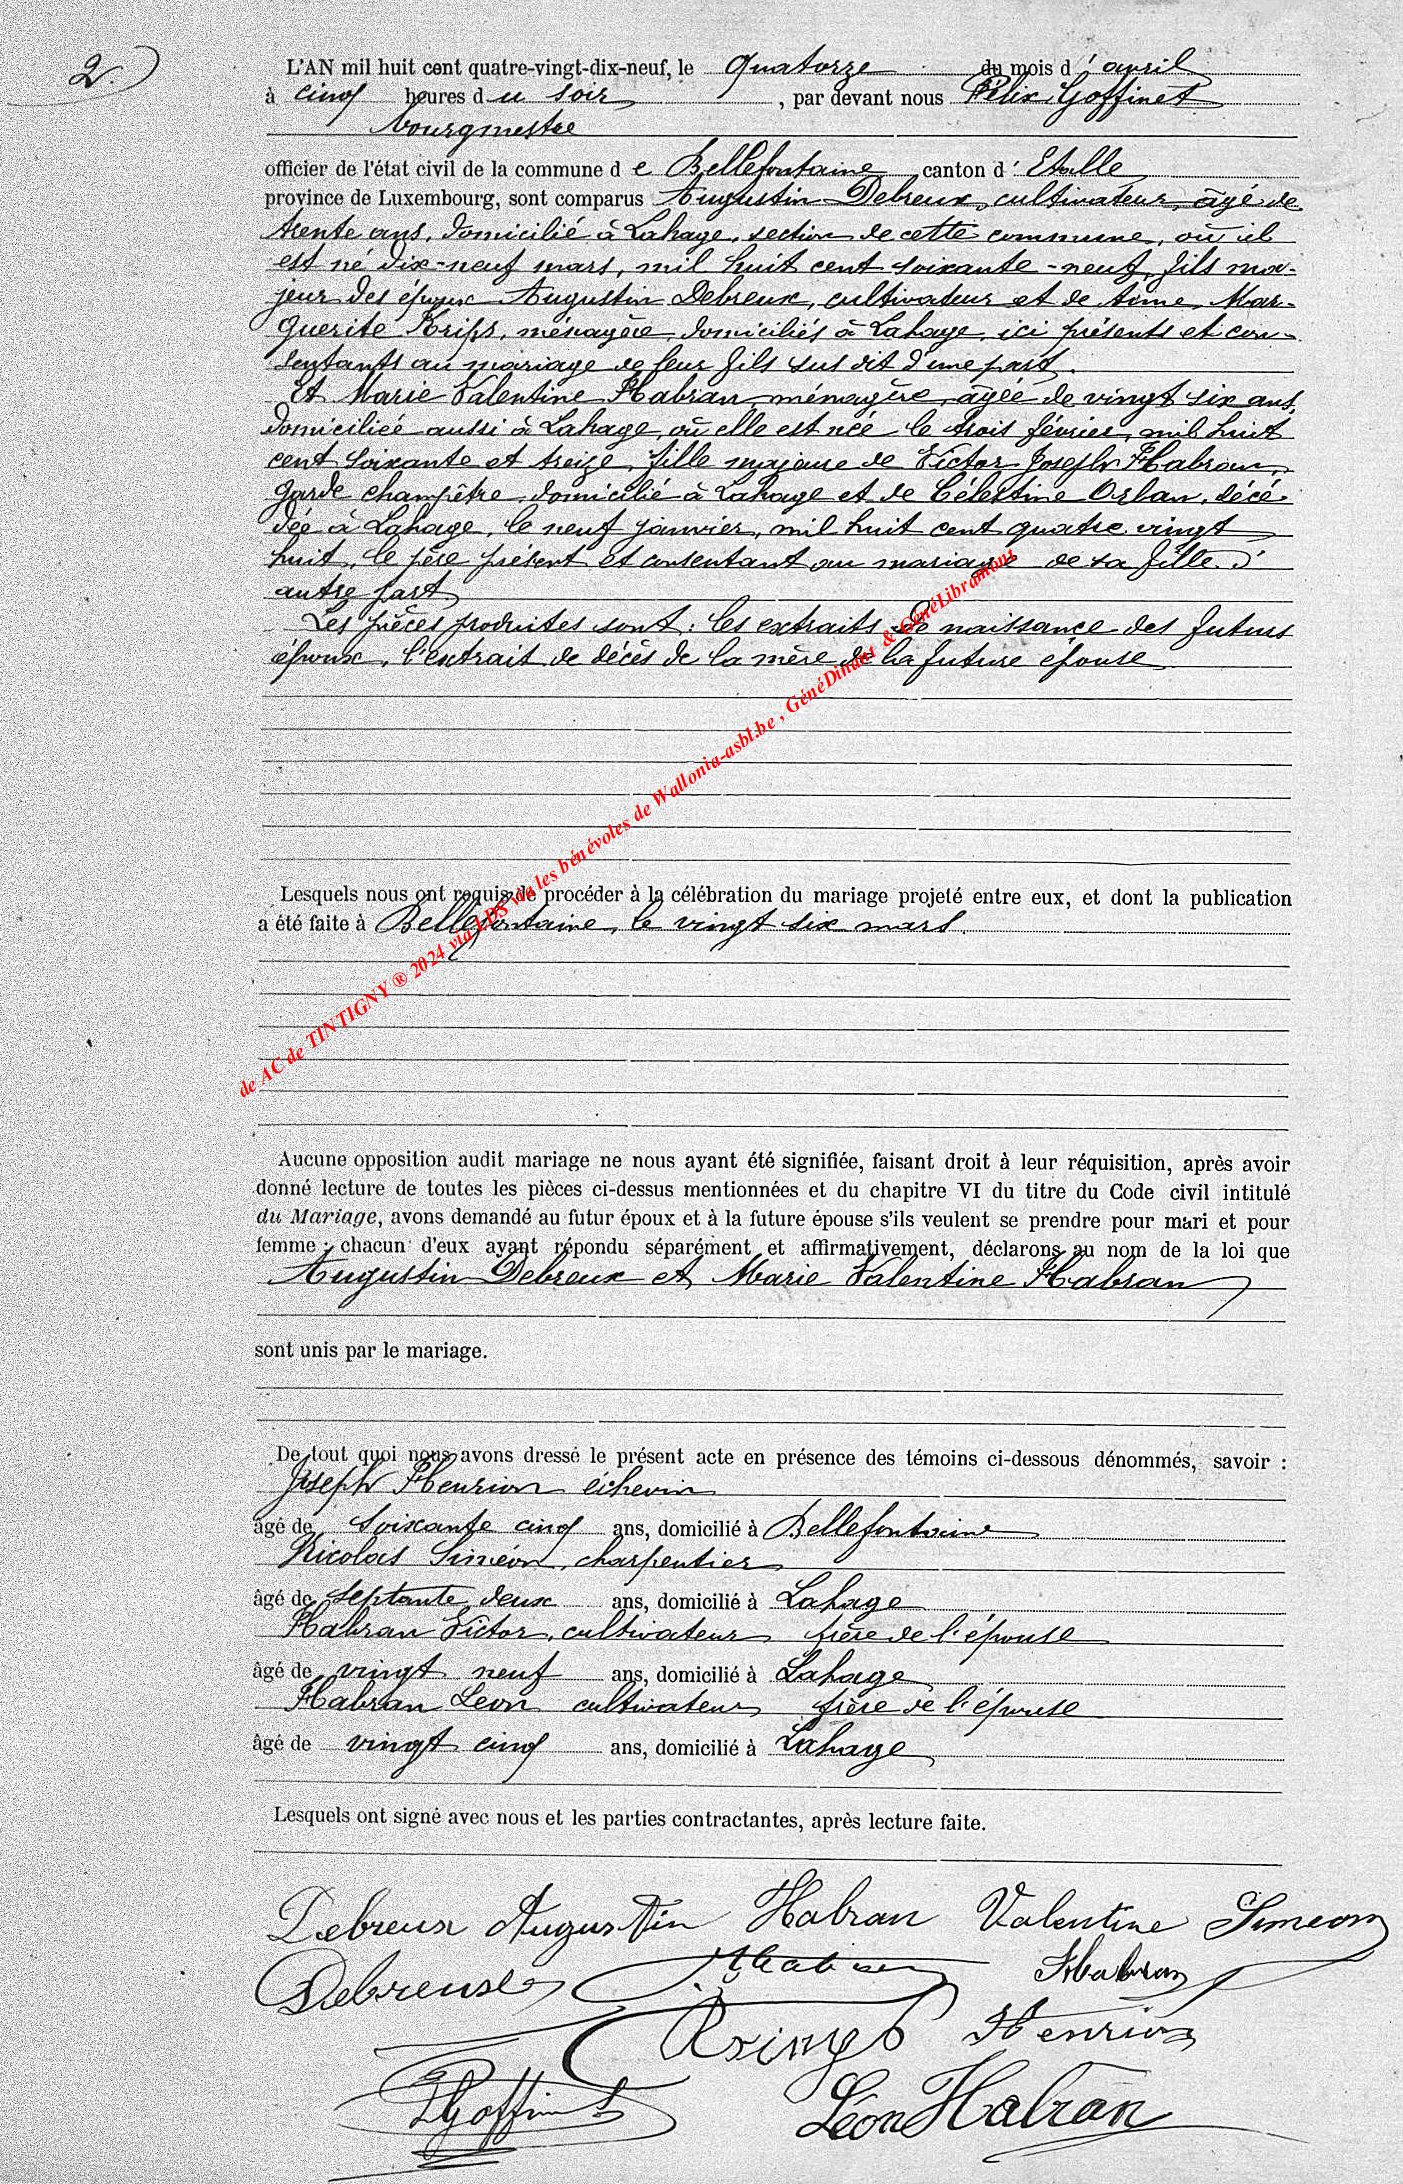 2
L'AN mil huit cent quatre-vingt-dix-neuf, le quatorze du mois d'avril
à cinq heures du soir, par devant nous Félix Goffinet
bourgmestre
officier de l'état civil de la commune de Bellefontaine canton d'Etalle
province de Luxembourg, sont comparus Augustin Debreux, cultivateur, âgé de
trente ans, domicilié à Lahage, section de cette commune, où il
est né dix-neuf mars, mil huit cent soixante-neuf, fils ma-
jeur des époux Augustin Debreux, cultivateur et de Anne Mar-
guerite Krips, ménagère, domiciliés à Lahage, ici présents et con-
sentants au mariage de leur fils sus dit d'une part.
Et Marie Valentine Habran, ménagère, âgée de vingt six ans,
domiciliée aussi à Lahage, où elle est née le trois février, mil huit
cent soixante et treize, fille majeure de Victor Joseph Habran,
garde champêtre, domicilié à Lahage et de Célestine Orban, décé-
dée à Lahage, le neuf janvier, mil huit cent quatre vingt
huit, le père présent et consentant au mariage de sa fille d'
autre part
Les pièces produites sont: les extraits de naissance des futurs
époux, l'extrait de décès de la mère de la future épouse
Lesquels nous ont requis de procéder à la célébration du mariage projeté entre eux, et dont la publication
a été faite à Bellefontaine, le vingt six mars.
de AC de TINTIGNY ® 2024 via LDS via les bénévoles de Wallonia-asbl.be, GénéDinant & GénéLibramont
Aucune opposition audit mariage ne nous ayant été signifiée, faisant droit à leur réquisition, après avoir
donné lecture de toutes les pièces ci-dessus mentionnées et du chapitre VI du titre du Code civil intitulé
du Mariage, avons demandé au futur époux et à la future épouse s'ils veulent se prendre pour mari et pour
femme; chacun d'eux ayant répondu séparément et affirmativement, déclarons au nom de la loi que
Augustin Debreux et Marie Valentine Habran
sont unis par le mariage.
De tout quoi nous avons dressé le présent acte en présence des témoins ci-dessous dénommés, savoir :
Joseph Henrion échevin
âgé de soixante cinq ans, domicilié à Bellefontaine
Nicolas Siméon, charpentier
âgé de septante deux ans, domicilié à Lahage
Habran Victor, cultivateur frère de l'épouse
âgé de vingt neuf ans, domicilié à Lahage
Habran Leon cultivateur frère de l'épouse
âgé de vingt cinq ans, domicilié à Lahage
Lesquels ont signé avec nous et les parties contractantes, après lecture faite.
Debreux Augustin Habran Valentine Simeon
Debreux Habran Habran
Henrion
Goffinet Léon Habran